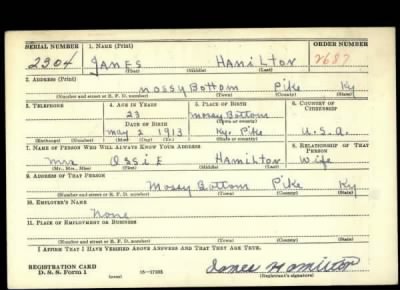 SERIAL NUMBER 1. NAME (Print) ORDER NUMBER
2304 JAMES HAMILTON 2687
(First) (Middle) (Last)
2. ADDRESS (Print)
Mossy Bottom Pike Ky
(Number and street or R. F. D. number) (Town) (County) (State)
3. TELEPHONE 4. AGE IN YEARS 5. PLACE OF BIRTH 6. COUNTRY OF CITIZENSHIP
23 Mossy Bottom
DATE OF BIRTH (Town or county)
May 2 1913 Ky. Pike U.S.A.
(Exchange) (Number) (Mo.) (Day) (Yr.) (State or country)
7. NAME OF PERSON WHO WILL ALWAYS KNOW YOUR ADDRESS 8. RELATIONSHIP OF THAT PERSON
Mrs OSSIE Hamilton Wife
(Mr., Mrs., Miss) (First) (Middle) (Last)
9. ADDRESS OF THAT PERSON
Mossy Bottom Pike Ky
(Number and street or R. F. D. number) (Town) (County) (State)
10. EMPLOYER'S NAME
None
11. PLACE OF EMPLOYMENT OR BUSINESS
(Number and street or R. F. D. number) (Town) (County) (State)
I AFFIRM THAT I HAVE VERIFIED ABOVE ANSWERS AND THAT THEY ARE TRUE.
REGISTRATION CARD James Hamilton
D. S. S. Form 1 (over) 16-17105 (Registrant's signature)